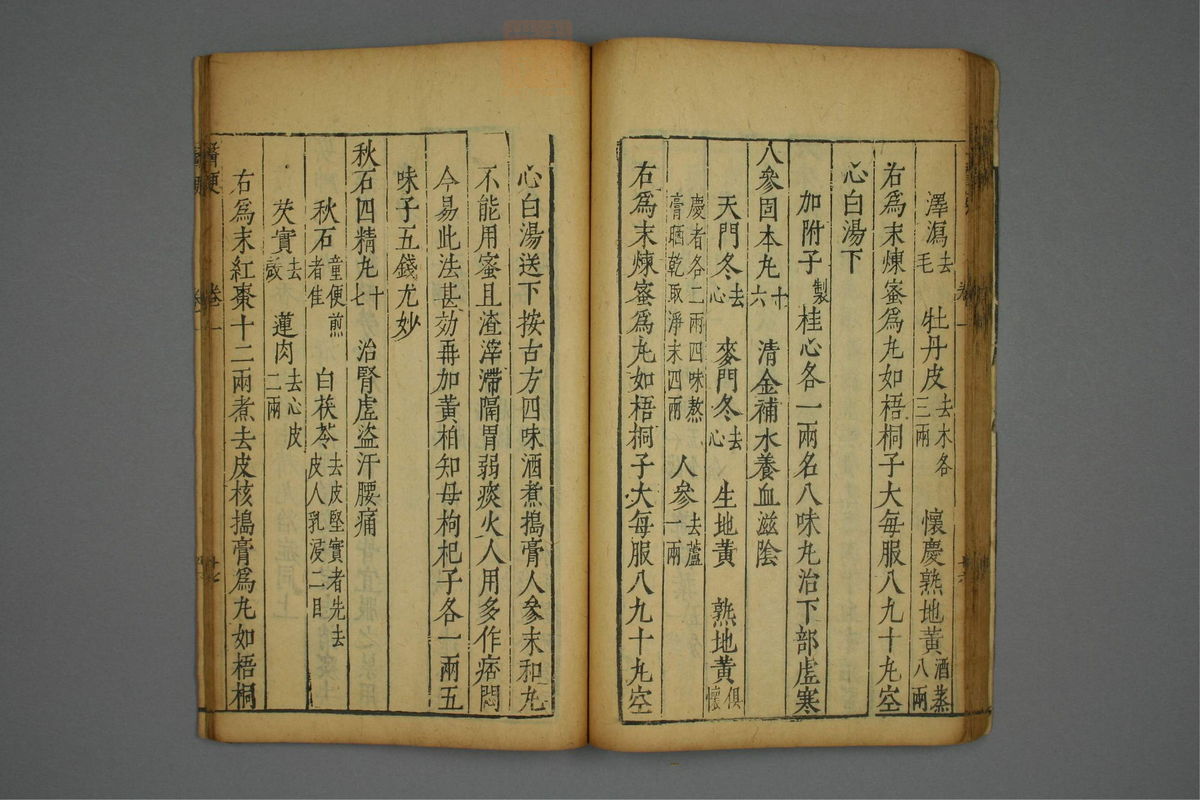 澤瀉去毛 牡丹皮去木各三兩 懷慶熟地黃酒蒸八兩
右為末煉蜜為丸如梧桐子大每服八九十丸空
心白湯下
加附子製桂心各一兩名八味丸治下部虛寒
人參固本丸十六 清金補水養血滋陰
天門冬去心 麥門冬去心 生地黃 熟地黃俱懷
慶者各二兩四味熬膏晒乾取淨末四兩 人參去蘆一兩
右為末煉蜜為丸如梧桐子大每服八九十丸空
心白湯送下按古方四味酒煮搗膏人參末和丸
不能用蜜且渣滓滯隔胃弱痰火人用多作痞悶
今易此法甚効再加黃柏知母枸杞子各一兩五
味子五錢尤妙
秋石四精丸十七 治腎虛盜汗腰痛
秋石童便煎者佳 白茯苓去皮堅實者先去皮人乳浸二日
芡實去殼 蓮肉去心皮二兩
右為末紅棗十二兩煮去皮核搗膏為丸如梧桐
卷一